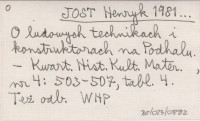 o
JOST Henryk 1981...
O ludowych technikach i
konstruktorach na Podhalu.
- Kwart. Hist. Kult. Mater.,
nr 4: 503-507, tabl. 4.
Też odb. WHP